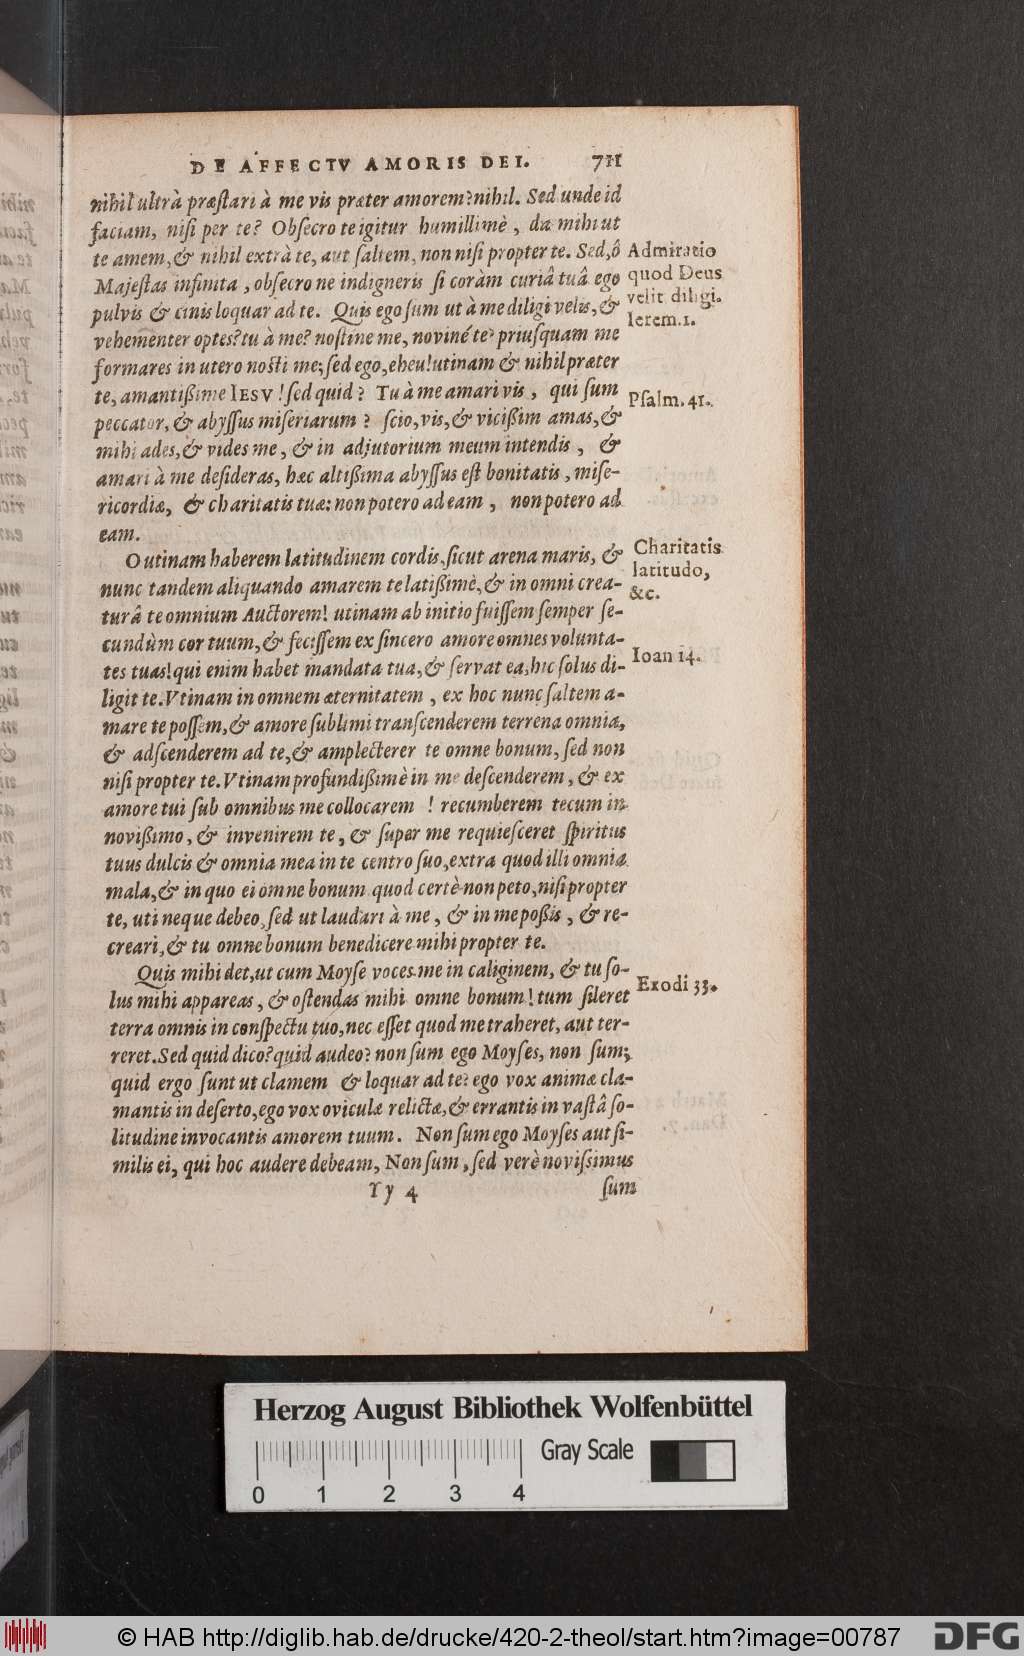 DE AFFECTV AMORIS DEI. 711
nihil ultrà præstari à me vis præter amorem? nihil. Sed unde id
faciam, nisi per te? Obsecro te igitur humillimè, da mihi ut
te amem, & nihil extrà te, aut saltem, non nisi propter te. Sed, ô
Majestas infinita, obsecro ne indigneris si coràm curiâ tuâ ego
pulvis & cinis loquar ad te. Quis ego sum ut à me diligi velis, &
vehementer optes? tu à me? nostine me, novinè te? priusquam me
formares in utero nosti me; sed ego, eheu! utinam & nihil præter
te, amantißime IESV! sed quid? Tu à me amari vis, qui sum
peccator, & abyssus miseriarum? scio, vis, & vicißim amas, &
mihi ades, & vides me, & in adjutorium meum intendis, &
amari à me desideras, hæc altißima abyssus est bonitatis, mise-
ricordiæ, & charitatis tuæ: non potero ad eam, non potero ad
eam.
Admiratio
quod Deus
velit diligi.
Ierem. 1.
Psalm. 41.
O utinam haberem latitudinem cordis, sicut arena maris, &
nunc tandem aliquando amarem te latißimè, & in omni crea-
turâ te omnium Auctorem! utinam ab initio fuissem semper se-
cundùm cor tuum, & fecissem ex sincero amore omnes volunta-
tes tuas! qui enim habet mandata tua, & servat ea, hic solus di-
ligit te. Vtinam in omnem æternitatem, ex hoc nunc saltem a-
mare te possem, & amore sublimi transcenderem terrena omnia,
& adscenderem ad te, & amplecterer te omne bonum, sed non
nisi propter te. Vtinam profundißimè in me descenderem, & ex
amore tui sub omnibus me collocarem! recumberem tecum in
novißimo, & invenirem te, & super me requiesceret spiritus
tuus dulcis & omnia mea in te centro suo, extra quod illi omnia
mala, & in quo ei omne bonum quod certè non peto, nisi propter
te, uti neque debeo, sed ut laudari à me, & in me poßis, & re-
creari, & tu omne bonum benedicere mihi propter te.
Charitatis
latitudo,
&c.
Ioan 14.
Quis mihi det, ut cum Moyse voces me in caliginem, & tu so-
lus mihi appareas, & ostendas mihi omne bonum! tum sileret
terra omnis in conspectu tuo, nec esset quod me traheret, aut ter-
reret. Sed quid dico? quid audeo? non sum ego Moyses, non sum;
quid ergo sunt ut clamem & loquar ad te? ego vox animæ cla-
mantis in deserto, ego vox oviculæ relictæ, & errantis in vastâ so-
litudine invocantis amorem tuum. Non sum ego Moyses aut si-
milis ei, qui hoc audere debeam, Non sum, sed verè novissimus
Exodi 33.
Yy 4 sum
Herzog August Bibliothek Wolfenbüttel
Gray Scale
0 1 2 3 4
© HAB http://diglib.hab.de/drucke/420-2-theol/start.htm?image=00787
DFG